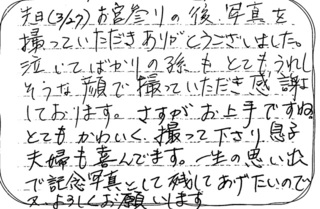 先日(3/27)お宮参りの後、写真を
撮っていただきありがとうございました。
泣いてばかりの孫もとてもうれし
そうな顔で撮っていただき感謝
しております。さすがお上手ですね。
とてもかわいく撮って下さり息子
夫婦も喜んでます。一生の思い出
で記念写真として残してあげたいので
又よろしくお願いします